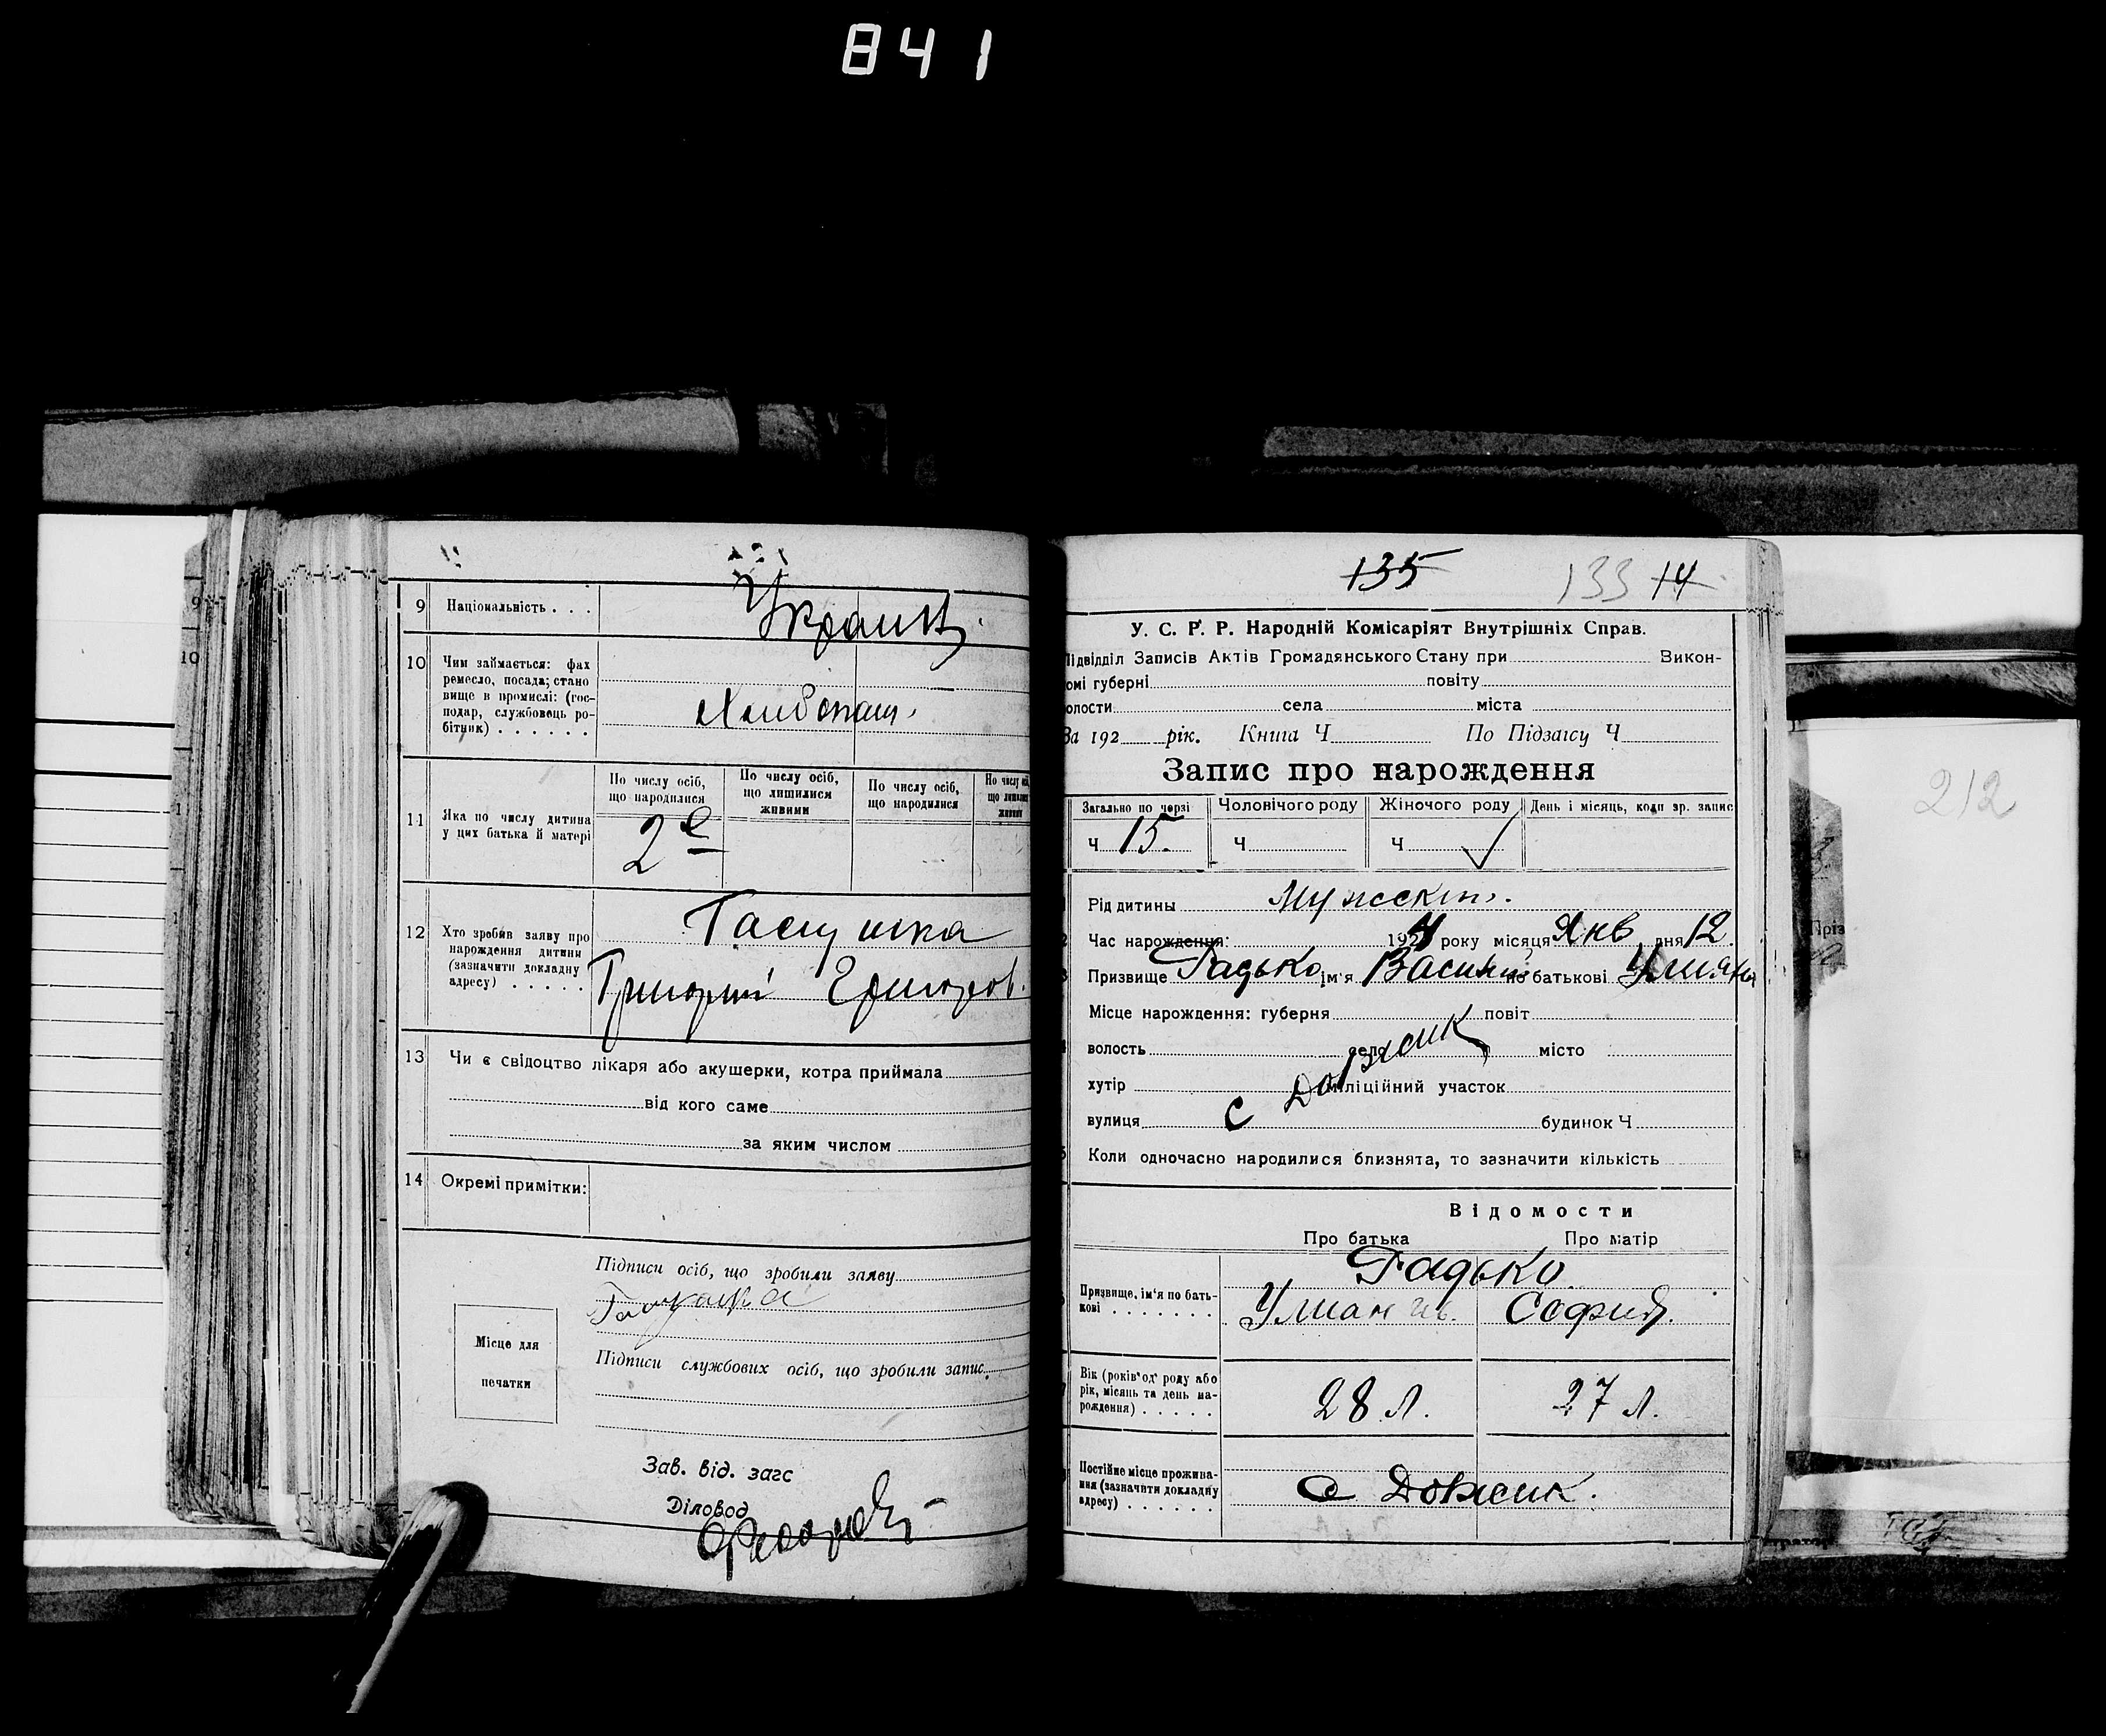 841
9 Національність . . .
Украин
10 Чим займається: фах
ремесло, посада; стано
вище в промислі: (гос-
подар, службовець ро-
бітник) . . . . . .
Хлибопаш.
11 Яка по числу дитина
у цих батька й матері
По числу осіб,
що народилися
По числу осіб,
що лишилися
живими
По числу осіб,
що народилися
2е
12 Хто зробив заяву про
нарождення дитини
(зазначити докладну
адресу) . . . . .
Григорий Григоров.
13 Чи є свідоцтво лікаря або акушерки, котра приймала
від кого саме
за яким числом
14 Окремі примітки:
Підписи осіб, що зробили заяву
Місце для
печатки
Підписи службових осіб, що зробили запис.
Зав. від. загс
Діловод
135 133 14
У. С. Р. Р. Народній Комісаріят Внутрішніх Справ.
Підвідділ Записів Актів Громадянського Стану при Викон-
омі губерні повіту
олости села міста
За 192 рік. Книга Ч По Підзагсу Ч
Запис про нарождення
Загально по черзі Чоловічого роду Жіночого роду День і місяць, коли зр. запис
Ч 15. Ч Ч ✓
Рід дитины Мужеск
Час нарождення: 1924 року місяця Янв дня 12.
Призвище Гадько ім'я Василий по батькові Ульян
Місце нарождення: губерня повіт
волость село місто
хутір міліційний участок
с Довжик
вулиця будинок Ч
Коли одночасно народилися близнята, то зазначити кількість
Відомости
Про батька Про матір
Призвище, ім'я по бать-
кові . . . . . . .
Гадько
Ульян София.
Вік (років од роду або
рік, місяць та день на-
рождення) . . . . .
28 л. 27 л.
Постійне місце прожива-
ння (зазначити докладну
адресу) . . . . . .
с Довжик.
212